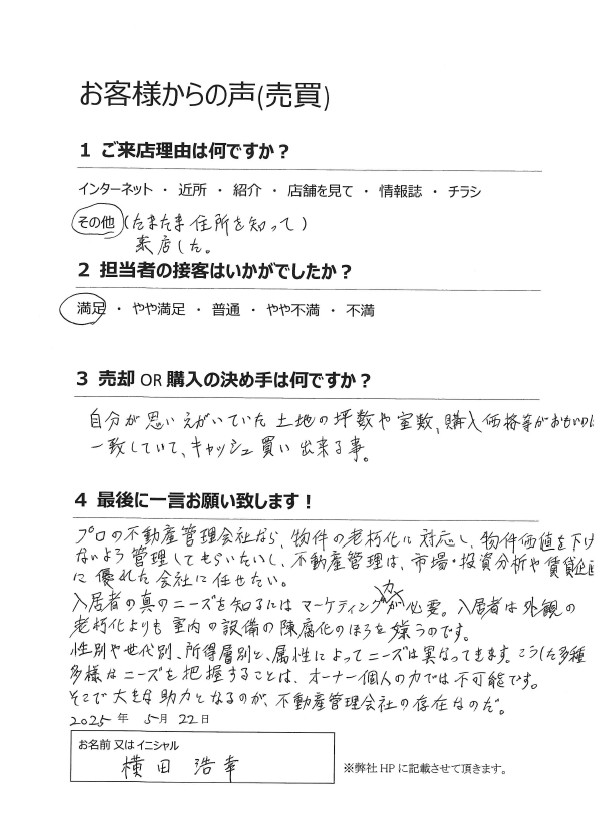 お客様からの声(売買)
1 ご来店理由は何ですか？
インターネット ・ 近所 ・ 紹介 ・ 店舗を見て ・ 情報誌 ・ チラシ
その他 (たまたま住所を知って)
来店した。
2 担当者の接客はいかがでしたか？
満足 ・ やや満足 ・ 普通 ・ やや不満 ・ 不満
3 売却 OR 購入の決め手は何ですか？
自分が思いえがいていた土地の坪数や室数、購入価格等がおもいのほ
一致していて、キャッシュ買い出来る事。
4 最後に一言お願い致します！
プロの不動産管理会社なら、物件の老朽化に対応し、物件価値を下げ
ないよう管理してもらいたいし、不動産管理は、市場・投資分析や賃貸企画
に優れた会社に任せたい。
入居者の真のニーズを知るにはマーケティング力が必要。入居者は外観の
老朽化よりも室内の設備の陳腐化のほうを嫌うのです。
性別や世代別、所得層別と、属性によってニーズは異なってきます。こうした多種
多様なニーズを把握することは、オーナー個人の力では不可能です。
そこで大きな助力となるのが、不動産管理会社の存在なのだ。
2025 年 5月 22日
お名前又はイニシャル
横田 浩幸
※弊社 HP に記載させて頂きます。